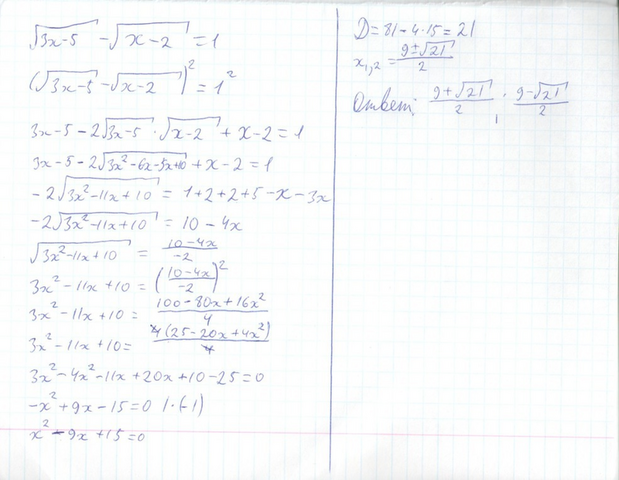 √3x-5 - √x-2 = 1
(√3x-5 - √x-2)² = 1²
3x-5-2√3x-5 · √x-2 + x-2 = 1
3x-5-2√3x²-6x-5x+10 + x-2 = 1
-2√3x²-11x+10 = 1+2+2+5-x-3x
-2√3x²-11x+10 = 10-4x
√3x²-11x+10 = (10-4x)/-2
3x²-11x+10 = ((10-4x)/-2)²
3x²-11x+10 = (100-80x+16x²)/4
3x²-11x+10 = 4(25-20x+4x²)/4
3x²-4x²-11x+20x+10-25=0
-x²+9x-15=0 |·(-1)
x²-9x+15=0
D=81-4·15=21
x₁,₂ = (9±√21)/2
Ответ: (9+√21)/2 ; (9-√21)/2